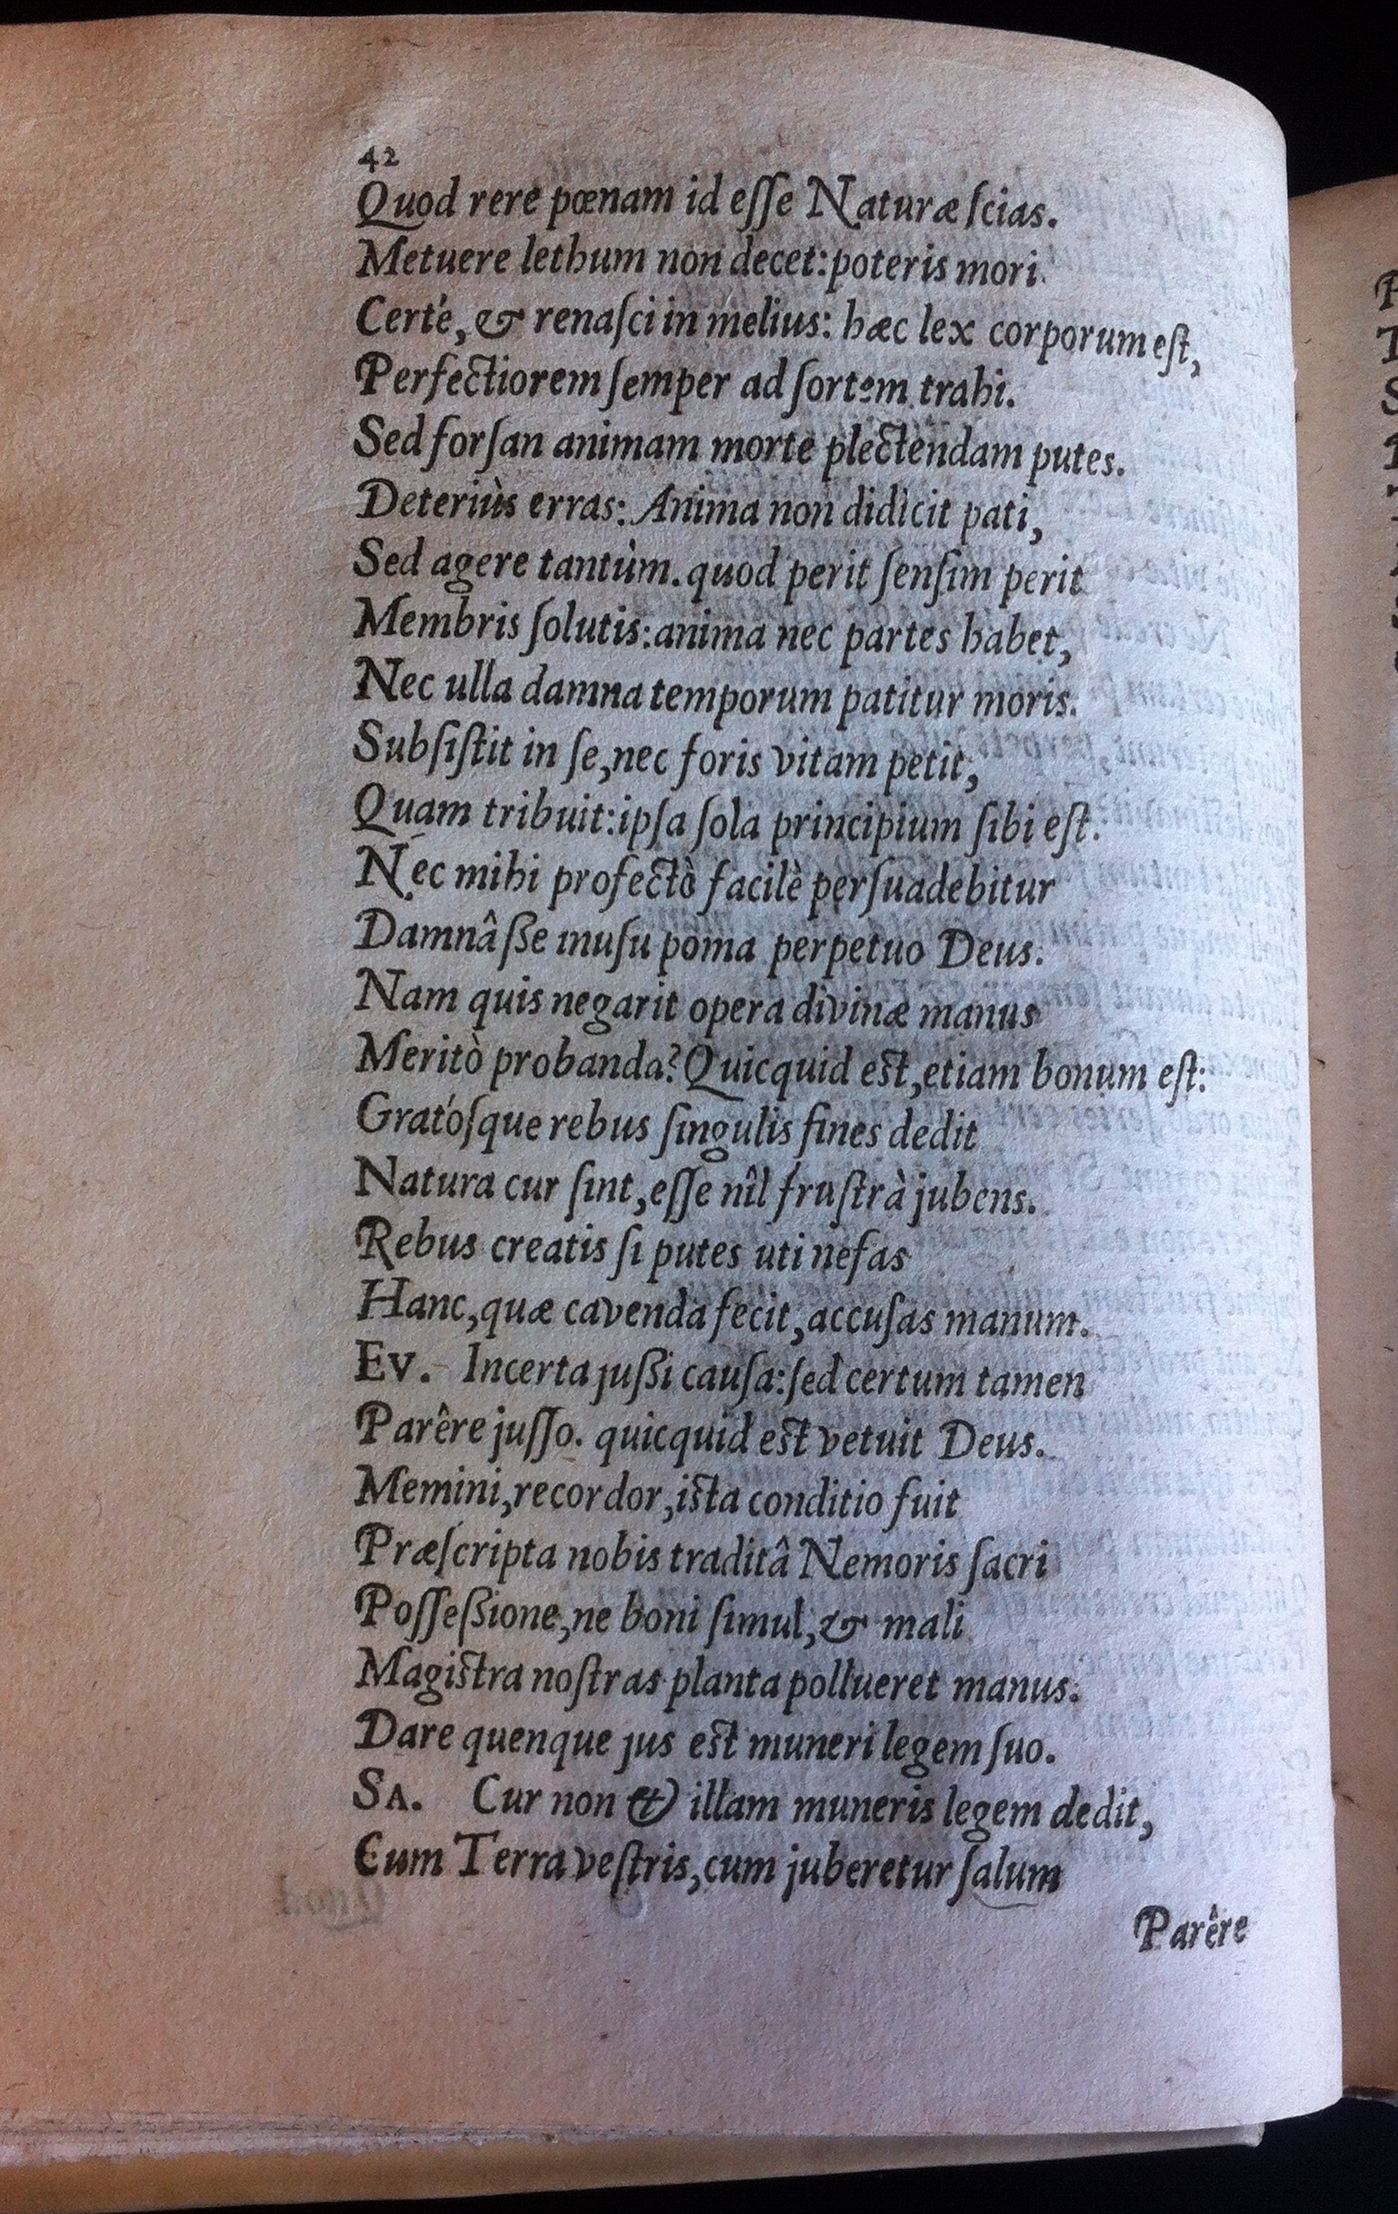 42
Quod rere pœnam id eſſe Naturæ ſcias.
Metuere lethum non decet: poteris mori
Certé, & renaſci in melius: hæc lex corporum eſt,
Perfectiorem ſemper ad ſortem trahi.
Sed forſan animam morte plectendam putes.
Deteriùs erras: Anima non didicit pati,
Sed agere tantùm. quod perit ſenſim perit
Membris ſolutis: anima nec partes habet,
Nec ulla damna temporum patitur moris.
Subſiſtit in ſe, nec foris vitam petit,
Quam tribuit: ipſa ſola principium ſibi eſt.
Nec mihi profectò facilè perſuadebitur
Damnâſſe inuſu poma perpetuo Deus.
Nam quis negarit opera divinæ manus
Meritò probanda? Quicquid eſt, etiam bonum eſt:
Gratóſque rebus ſingulis fines dedit
Natura cur ſint, eſſe nîl fruſtrà jubens.
Rebus creatis ſi putes uti nefas
Hanc, quæ cavenda fecit, accuſas manum.
EV. Incerta juſſi cauſa: ſed certum tamen
Parêre juſſo. quicquid eſt vetuit Deus.
Memini, recordor, iſta conditio fuit
Præſcripta nobis traditâ Nemoris ſacri
Poſſeſſione, ne boni ſimul, & mali
Magiſtra noſtras planta pollueret manus.
Dare quenque jus eſt muneri legem ſuo.
SA. Cur non & illam muneris legem dedit,
Cum Terra veſtris, cum juberetur ſalum
Parêre